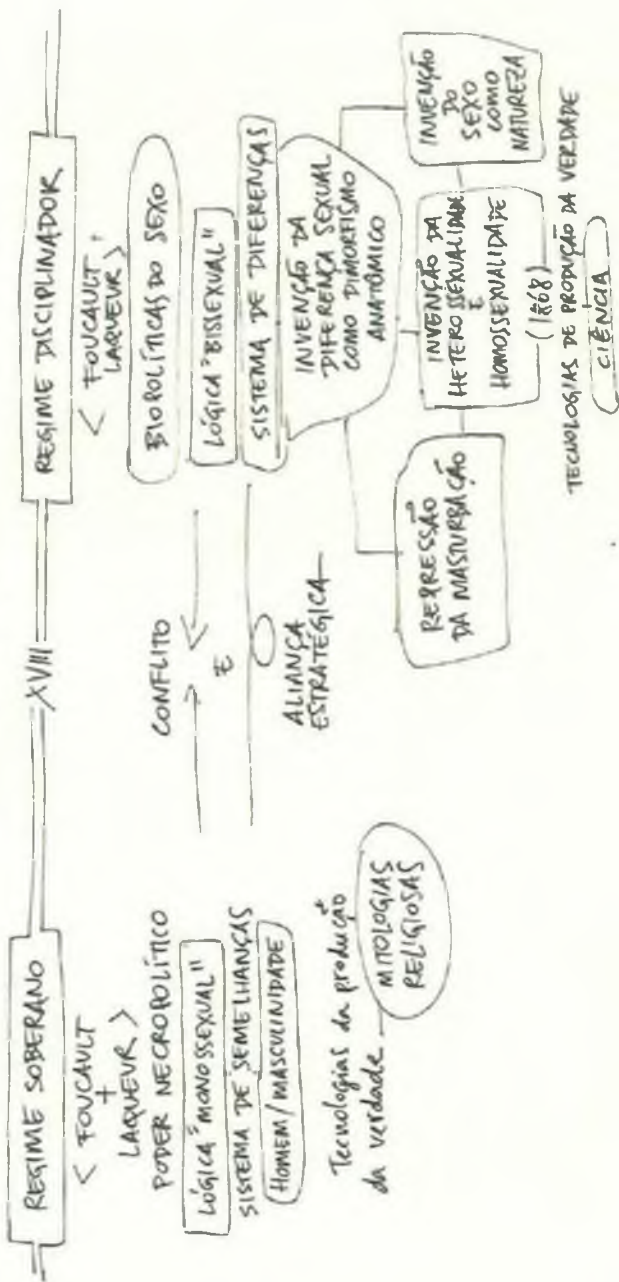 REGIME SOBERANO
< FOUCAULT
+
LAQUEUR >
PODER NECROPOLÍTICO
LÓGICA "MONOSSEXUAL"
SISTEMA DE SEMELHANÇAS
HOMEM/MASCULINIDADE
Tecnologias da produção
da verdade
MITOLOGIAS
RELIGIOSAS
XVIII
CONFLITO
E
ALIANÇA
ESTRATÉGICA
REGIME DISCIPLINADOR
< FOUCAULT
LAQUEUR >
BIOPOLÍTICAS DO SEXO
LÓGICA "BISSEXUAL"
SISTEMA DE DIFERENÇAS
INVENÇÃO DA
DIFERENÇA SEXUAL
COMO DIMORFISMO
ANATÔMICO
REPRESSÃO
DA MASTURBAÇÃO
INVENÇÃO DA
HETEROSSEXUALIDADE
E
HOMOSSEXUALIDADE
(1868)
INVENÇÃO
DO
SEXO
COMO
NATUREZA
TECNOLOGIAS DE PRODUÇÃO DA VERDADE
CIÊNCIA